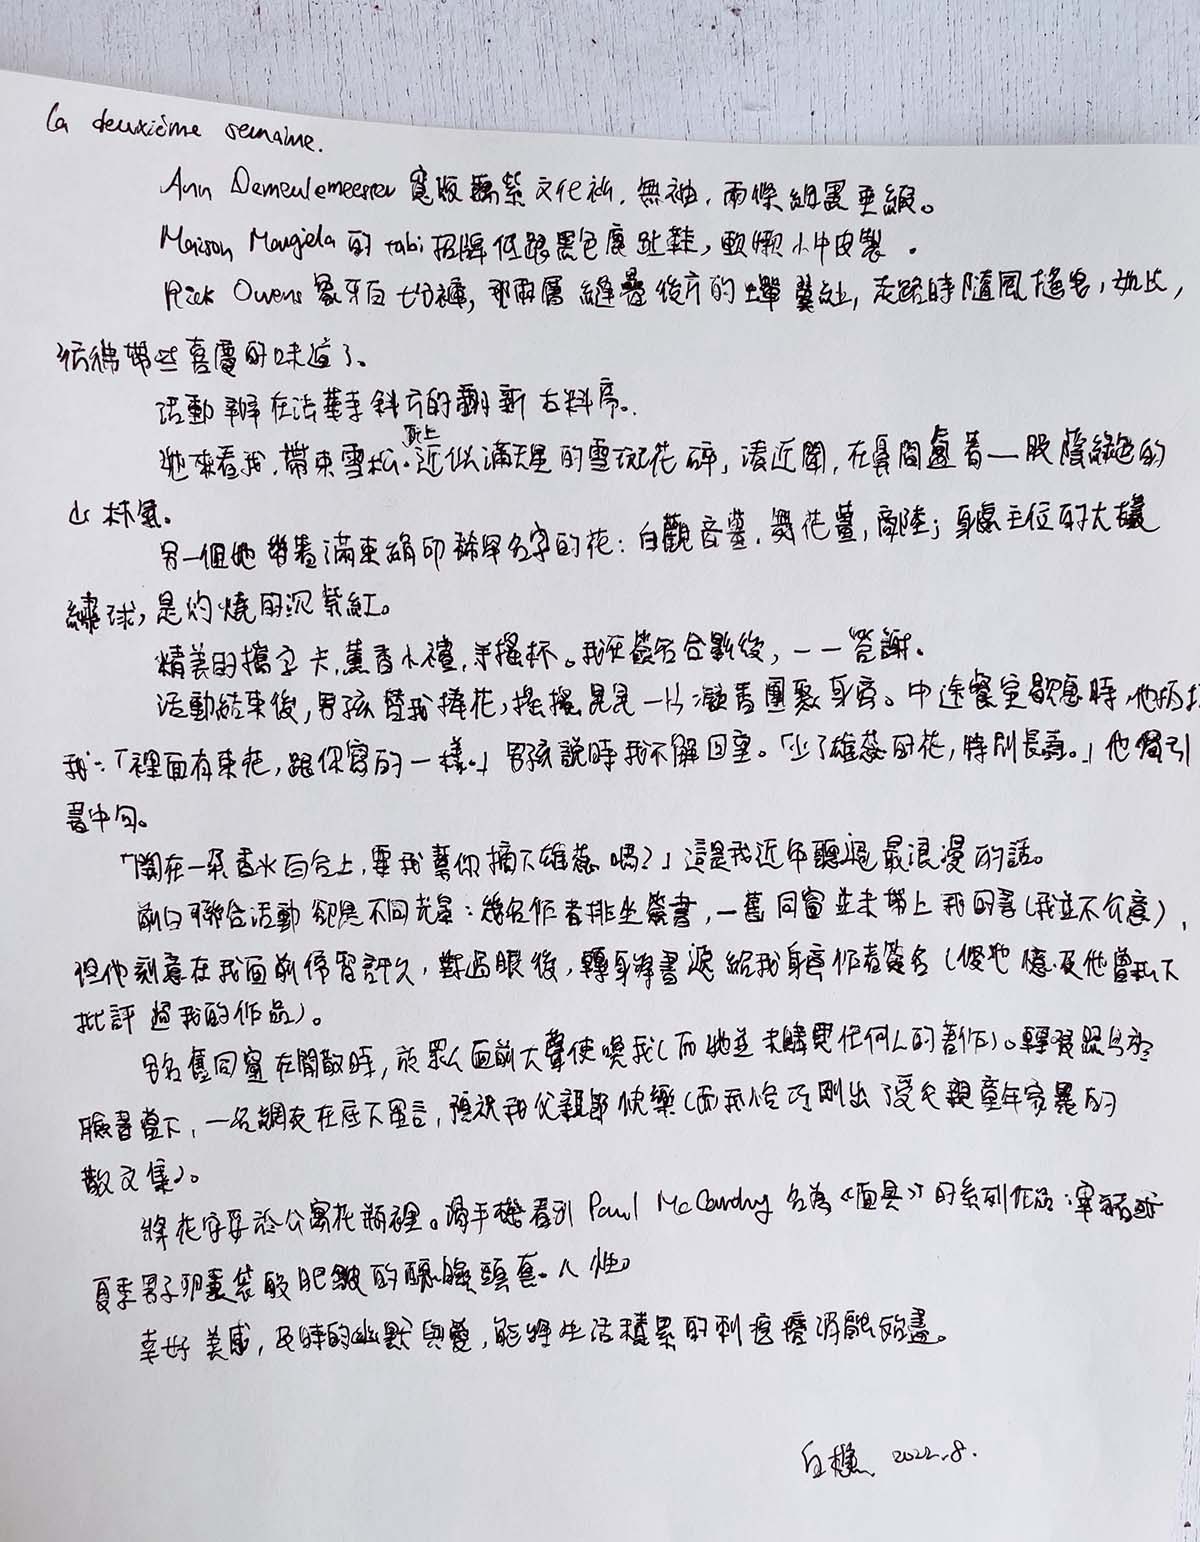 la deuxième semaine.
Ann Demeulemeester 寬版藕紫文化衫，無袖，兩條細帶垂綴。
Maison Margiela 的 tabi 招牌低跟黑色魔趾鞋，軟嫩小牛皮製。
Rick Owens 象牙白七分褲，那兩層縫疊後方的蟬翼紗，走路時隨風搖曳，如此，
彷彿帶些喜慶的味道了。
活動辦在法華寺斜方的翻新古料亭。
她來看我，帶束雪松。頂上近似滿天星的雪玩花碎，湊近聞，在鼻間處著一股蔭綠色的
山林氣。
另一個她帶著滿束綢印稀罕名字的花：白觀音薑，舞花薑，商陸；身處主位的大
繡球，是灼燒的沉紫紅。
精美的 字卡，薰香小禮，手搖杯。我在簽名合影後，一一答謝。
活動結束後，男孩替我捧花，搖搖晃晃一以凝香團聚身旁。中途餐室歇息時，他
我：「裡面有束花，跟你寫的一樣。」男孩說時我不解回望。「少了雄蕊的花，特別長壽。」他 引
書中句。
「開在一朵香水百合上，要我幫你摘下雄蕊嗎？」這是我近年聽過最浪漫的話。
前日聯合活動卻是不同光景：幾名作者排坐簽書，一舊同窗並未帶上我的書（我並不介意），
但他刻意在我面前停留許久，對過眼後，轉身將書遞給我身旁作者簽名（ 憶及他曾私下
批評過我的作品）。
另名舊同窗在閒散時，於眾人面前大聲使喚我（而她並未購買任何人的著作）。
臉書當下，一名網友在底下留言，預祝我父親節快樂（而我恰巧剛出了受父親童年家暴的
散文集）。
將花安妥於公寓花瓶裡。滑手機看到 Paul McCarthy 名為《面具》的系列作品：
夏季男子卵囊袋般肥皺的醜臉頭套。人性。
幸好美感，及時的幽默與愛，能將生活積累的刺疙瘩消融殆盡。
白樵 2022.8.